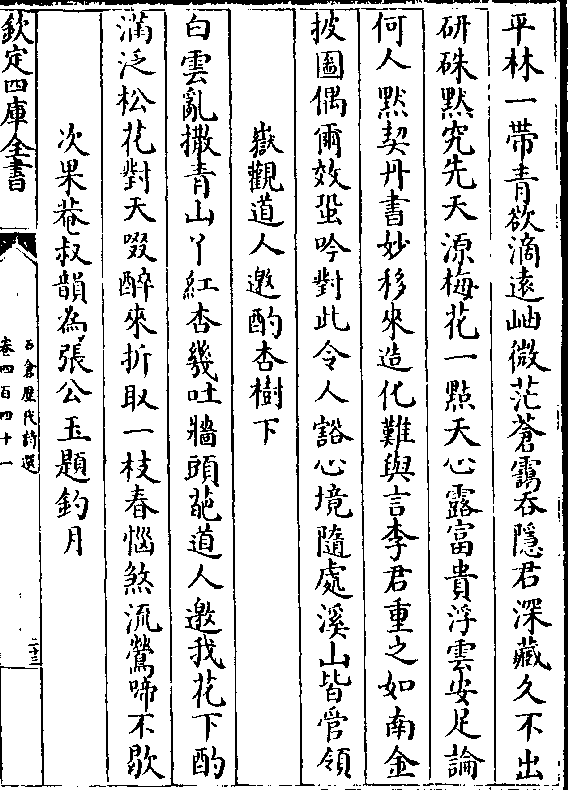 平林一帶青欲滴遠岫微茫蒼靄吞隱君深藏久不出
研硃默究先天源梅花一㸃天心露富貴浮雲安足論
何人黙契丹書妙移來造化難與言李君重之如南金
披圖偶爾效蛩吟對此令人豁心境隨處溪山皆管領
嶽觀道人邀酌杏樹下
白雲亂撒青山丫紅杏幾吐牆頭葩道人邀我花下酌
滿泛松花對天啜醉來折取一枝春惱煞流鶯啼不歇
次果菴叔韻為張公玉題釣月
欽定四庫全書
石倉歷代詩選
卷四百四十一
二十三